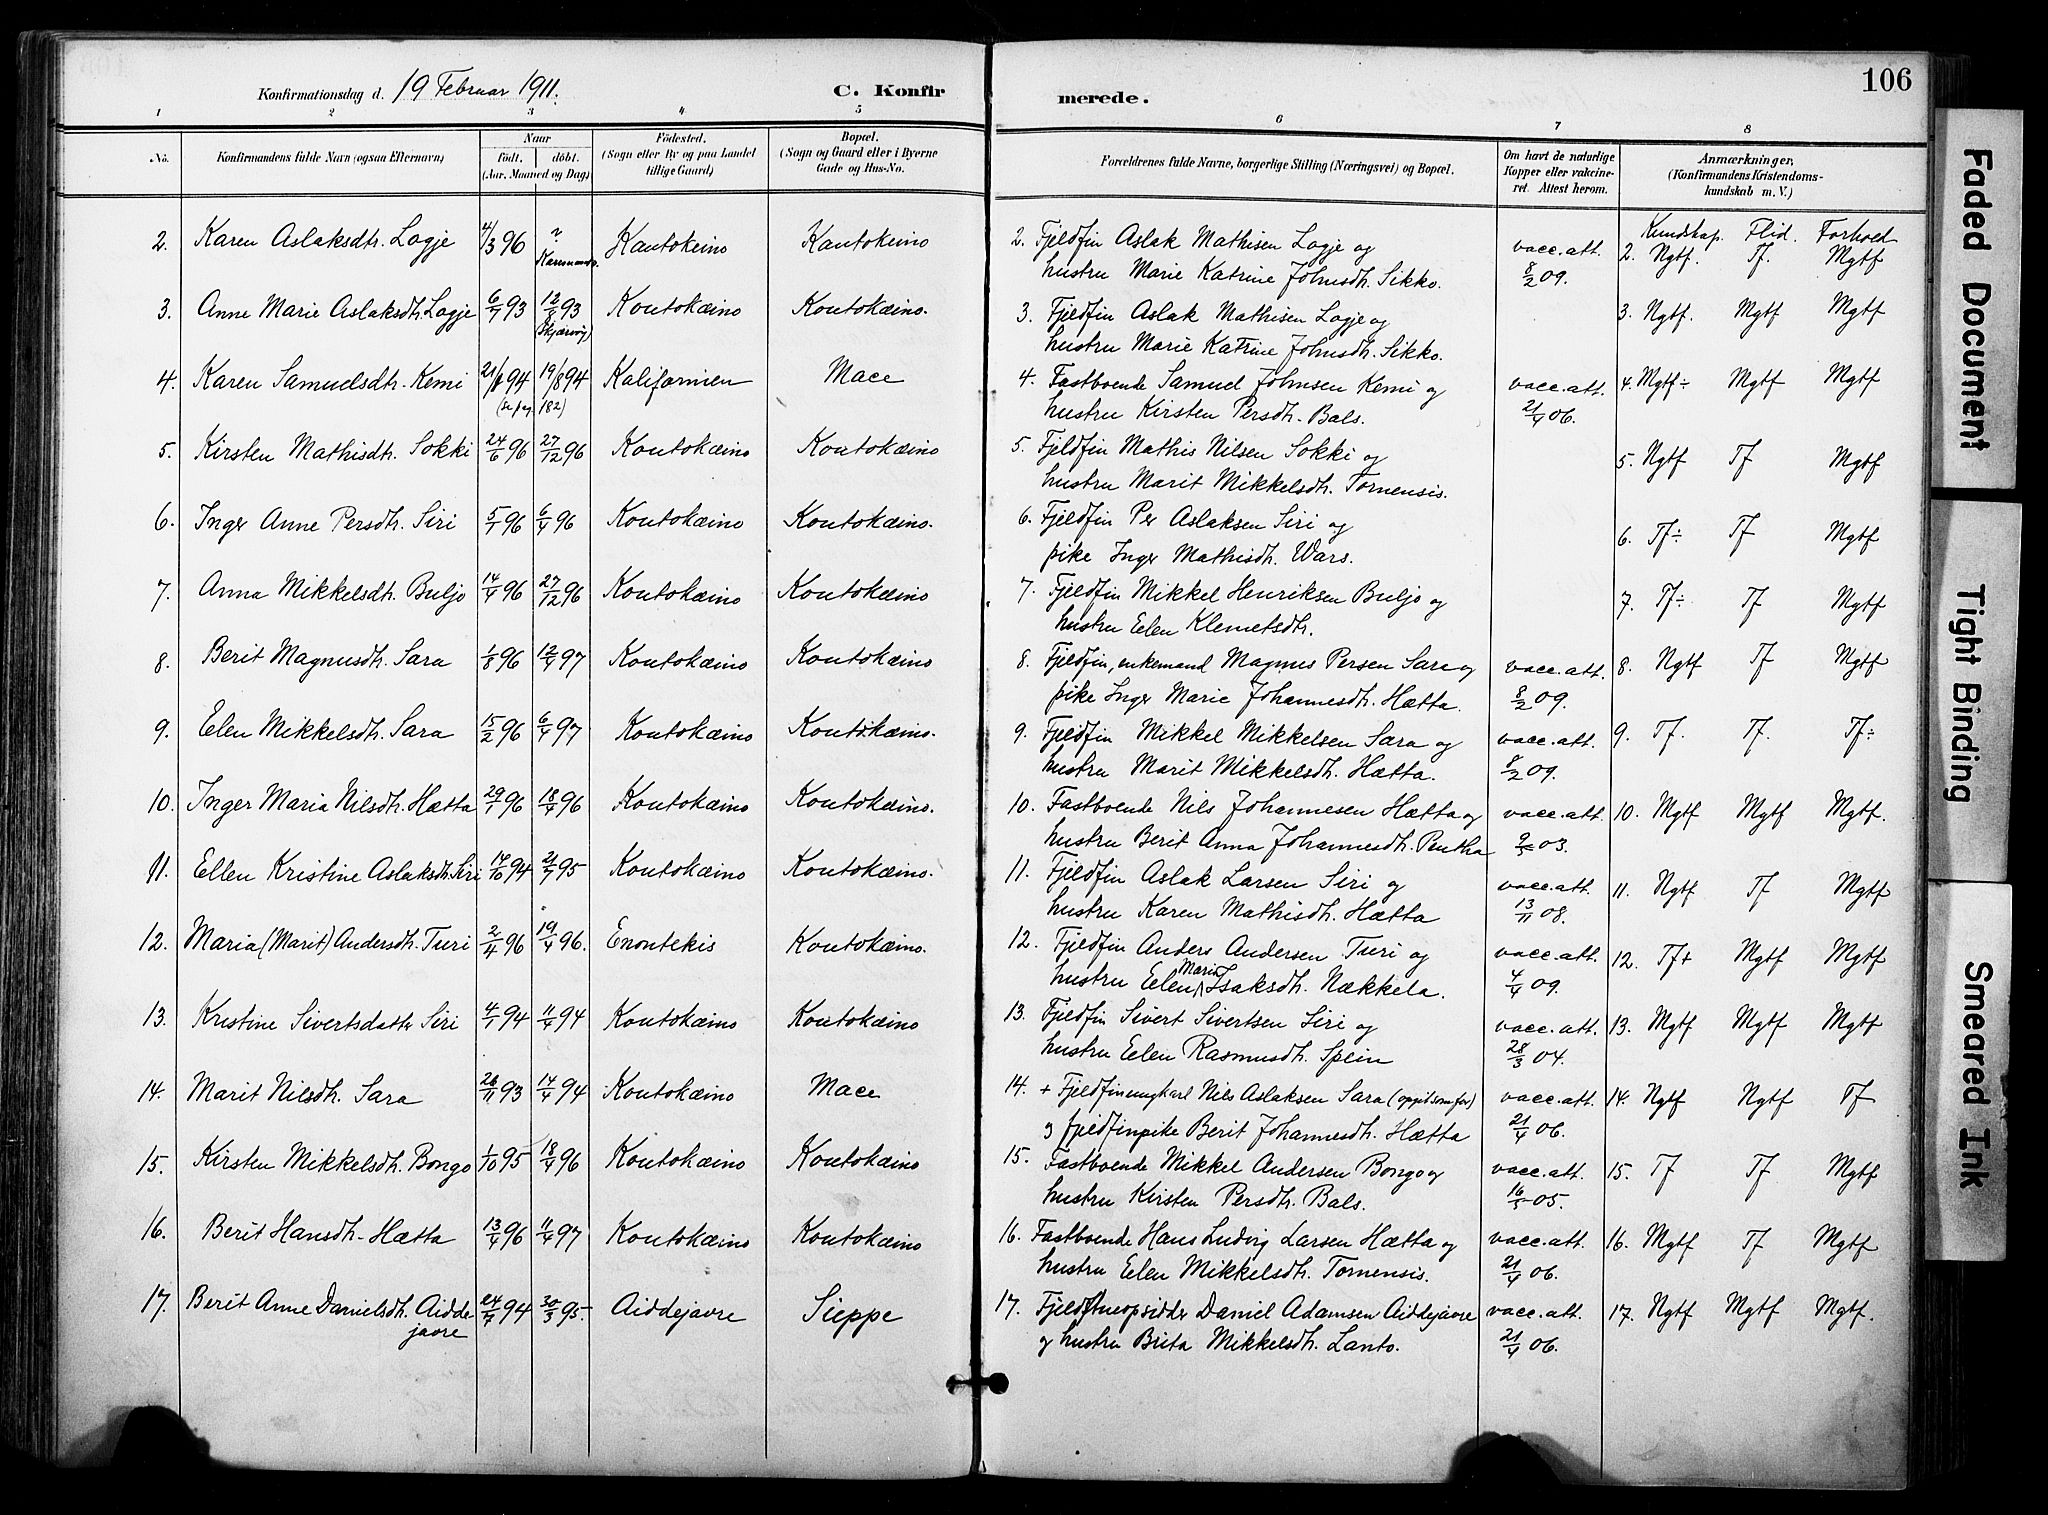 Konfirmationsdag d. 19 Februar 1911. C. Konfirmerede. 106
1 2 3 4 5 6 7 8
No. Konfirmandens fulde Navn (ogsaa Efternavn) Naar født. døbt. (Aar, Maaned og Dag) Fødested. (Sogn eller By og paa Landet tillige Gaard) Bopæl. (Sogn og Gaard eller i Byerne Gade og Hus-No. Forældrenes fulde Navne, borgerlige Stilling (Næringsvei) og Bopæl. Om havt de naturlige Kopper eller vakcineret. Attest herom. Anmærkninger, (Konfirmandens Kristendomskundskab m. V.)
Kundskap. Flid. Forhold
2. Karen Aslaksdtr. Logje 4/3 96 ? Kautokeino Kautokeino 2. Fjeldfin Aslak Mathisen Logje og vacc. att. 2. Ngtf. Tf. Mgtf
hustru Marie Katrine Johnsdtr. Sikko. 8/2 09.
3. Anne Marie Aslaksdtr. Logje 6/7 93 12/8 93 Koutokæino Koutokæino. 3. Fjeldfin Aslak Mathisen Logje og 3. Ngtf. Mgtf Mgtf
(Skjærvøy) hustru Marie Katrine Johnsdtr. Sikko.
4. Karen Samuelsdtr. Kemi 94 19/8 94 Kalifornien Mace 4. Fastboende Samuel Johnsen Kemi og vacc. att. 4. Mgtf÷ Mgtf Mgtf
(se pag 182) hustru Kirsten Persdtr. Bals. 21/4 06.
5. Kirsten Mathisdtr. Sokki 24/6 96 27/12 96 Koutokæino Koutokæino 5. Fjeldfin Mathis Nilsen Sokki og 5. Ngtf Tf Mgtf
hustru Marit Mikkelsdtr. Tornensis.
6. Inger Anne Persdtr. Siri 5/1 96 6/4 96 Koutokæino Koutokæino. 6. Fjeldfin Per Aslaksen Siri og 6. Tf÷ Tf Mgtf
pike Inger Mathisdtr. Wars.
7. Anna Mikkelsdtr. Buljo 14/4 96 27/12 96 Koutokæino Koutokæino 7. Fjeldfin Mikkel Henriksen Buljo og 7. Tf÷ Tf Mgtf
hustru Elen Klemetsdtr.
8. Berit Magnusdtr. Sara 1/8 96 12/4 97 Koutokæino Koutokæino 8. Fjeldfin, enkemand Magnus Persen Sara og vacc. att. 8. Ngtf Tf Mgtf
pike Inger Marie Johannesdtr. Hætta. 8/2 09.
9. Elen Mikkelsdtr. Sara 15/2 96 6/4 97 Koutokæino Koutokæino. 9. Fjeldfin Mikkel Mikkelsen Sara og vacc. att. 9. Tf. Tf. Tf÷
hustru Marit Mikkelsdtr. Hætta. 8/2 09.
10. Inger Maria Nilsdtr. Hætta 29/1 96 18/4 96 Koutokæino Koutokæino. 10. Fastboende Nils Johannesen Hætta og vacc. att. 10. Mgtf Mgtf Mgtf.
hustru Berit Anna Johannesdtr. Pentha 9/5 03.
11. Ellen Kristine Aslaksdtr. Siri 14/10 94 95 Koutokæino Koutokæino. 11. Fjeldfin Aslak Larsen Siri og vacc. att. 11. Ngtf Tf Mgtf
hustru Karen Mathisdtr. Hætta 13/11 08.
12. Maria (Marit) Andersdtr. Turi 2/4 96 19/4 96. Enontekis Koutokæino. 12. Fjeldfin Anders Andersen Turi og vacc. att. 12. Tf+ Mgtf Mgtf
hustru Elen Maria Isaksdtr. Nækkela. 4/4 09.
13. Kristine Sivertsdatter Siri 4/1 94 11/4 94 Koutokæino Koutokæino 13. Fjeldfin Sivert Sivertsen Siri og vacc. att. 13. Mgtf Mgtf Mgtf
hustru Elen Rasmusdtr. Spein 28/3 04.
14. Marit Nilsdtr. Sara 26/11 93 14/4 94 Koutokæino Mace 14. + Fjeldfinungkarl Nils Aslaksen Sara (opgit som far) vacc. att. 14. Ngtf Ngtf Tf
og fjeldfinpike Berit Johannesdtr. Hætta 21/4 06.
15. Kirsten Mikkelsdtr. Bongo 1/10 95 18/4 96 Koutokæino Koutokæino 15. Fastboende Mikkel Andersen Bongo og vacc. att. 15. Tf Tf Mgtf
hustru Kirsten Persdtr. Bals. 16/5 05.
16. Berit Hansdtr. Hætta 13/4 96 11/4 97 Koutokæino Koutokæino 16. Fastboende Hans Ludvig Larsen Hætta og vacc. att. 16. Mgtf Tf Mgtf
hustru Elen Mikkelsdtr. Tornensis. 21/4 06.
17. Berit Anne Danielsdtr. Aiddejavre 94 30/3 95 Aiddejavre Sieppe 17. Fjeldstueopsidder Daniel Adamsen Aiddejavre vacc. att. 17. Ngtf Mgtf Mgtf.
og hustru Brita Mikkelsdtr. Lanto. 21/4 06.
Faded Document
Tight Binding
Smeared Ink